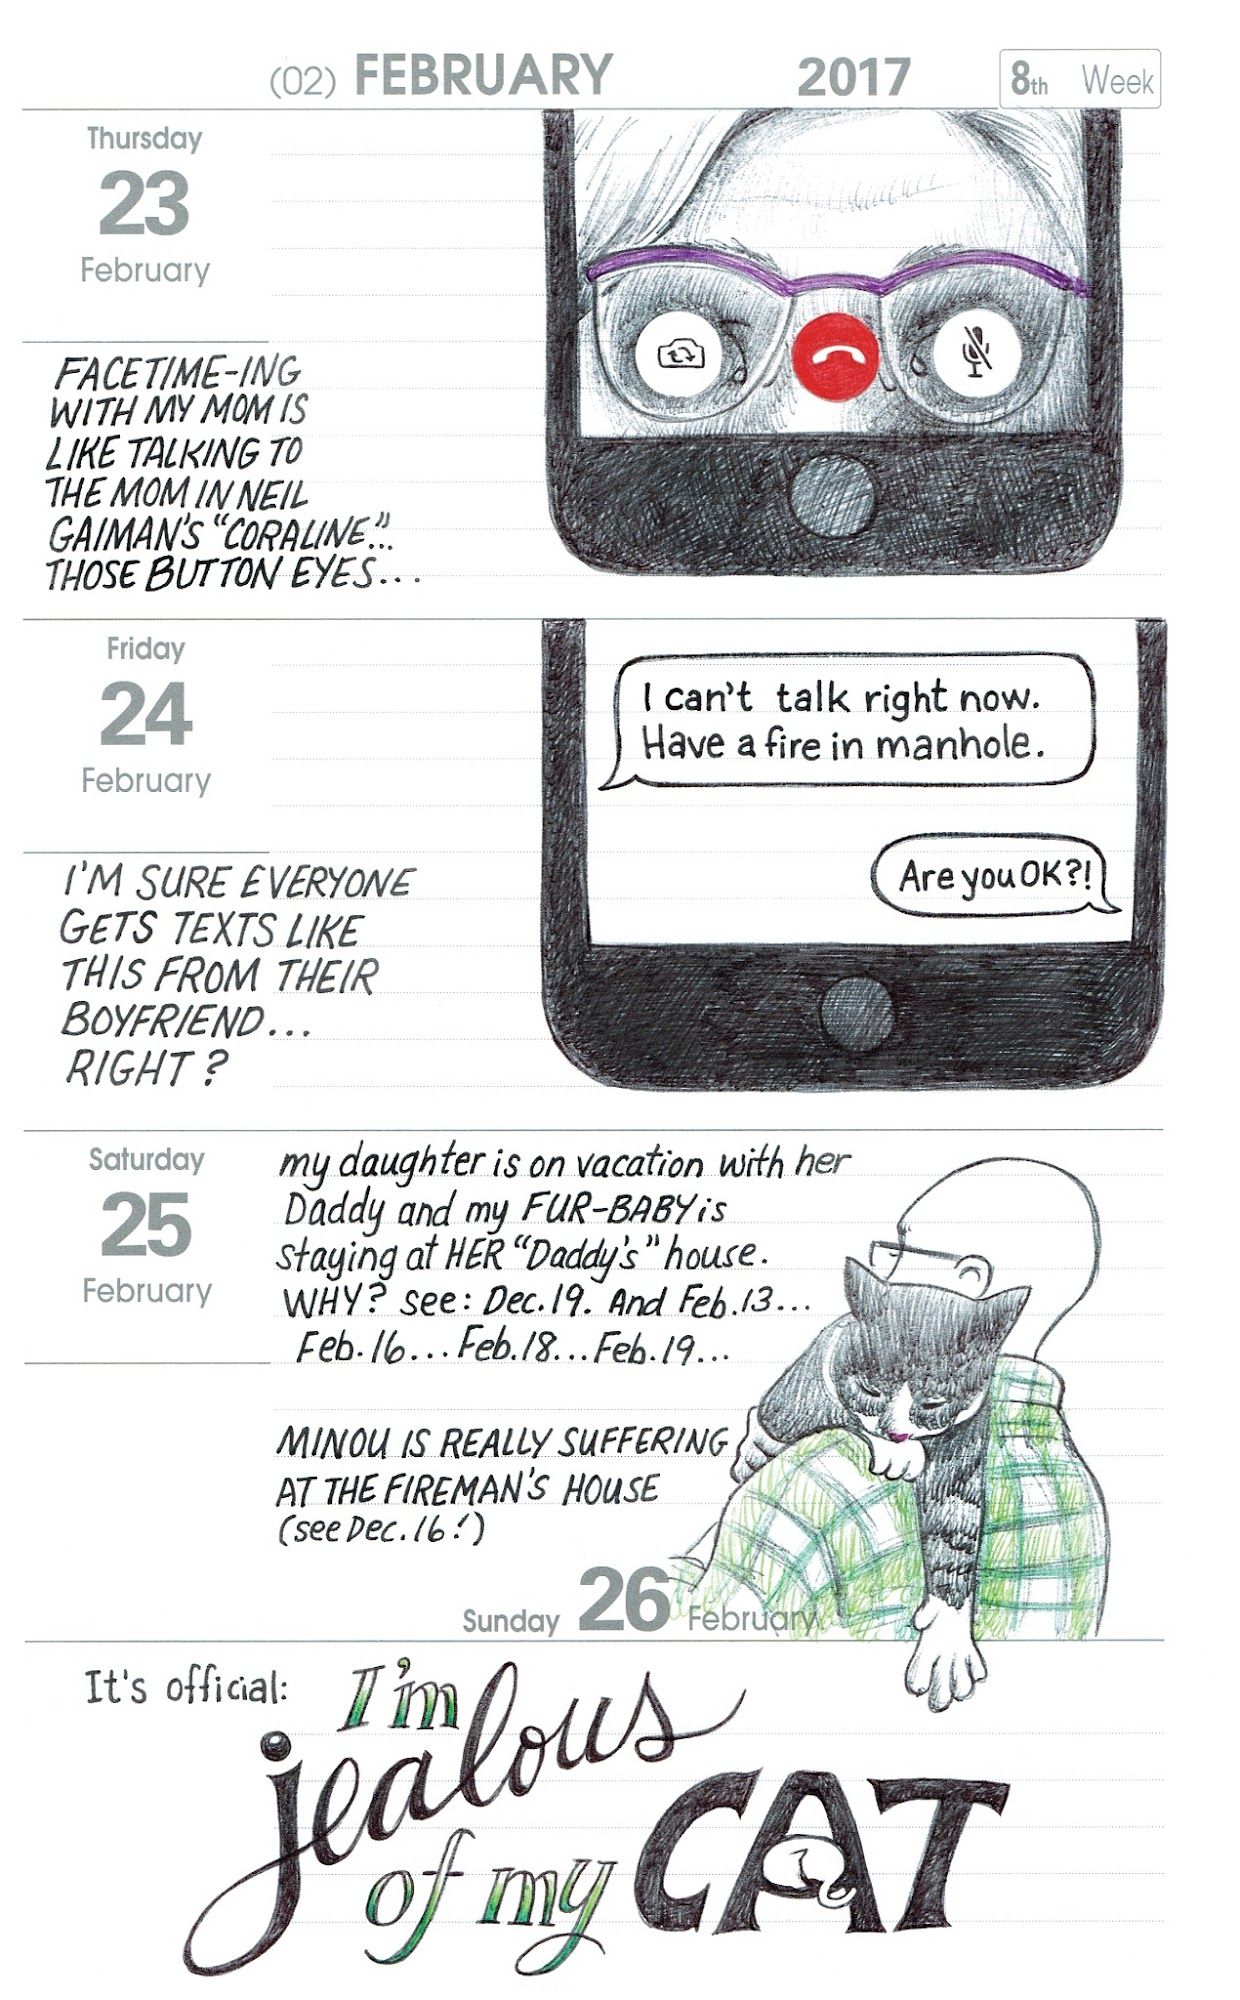 (02) FEBRUARY 2017 8th Week
Thursday
23
February
FACETIME-ING
WITH MY MOM IS
LIKE TALKING TO
THE MOM IN NEIL
GAIMAN'S "CORALINE"...
THOSE BUTTON EYES...
Friday
24
February
I can't talk right now.
Have a fire in manhole.
Are you OK?!
I'M SURE EVERYONE
GETS TEXTS LIKE
THIS FROM THEIR
BOYFRIEND...
RIGHT?
Saturday
25
February
my daughter is on vacation with her
Daddy and my FUR-BABY is
staying at HER "Daddy's" house.
WHY? see: Dec.19. And Feb.13...
Feb.16... Feb.18... Feb.19...
MINOU IS REALLY SUFFERING
AT THE FIREMAN'S HOUSE
(see Dec.16!)
Sunday 26 February
It's official:
I'm
jealous
of my CAT